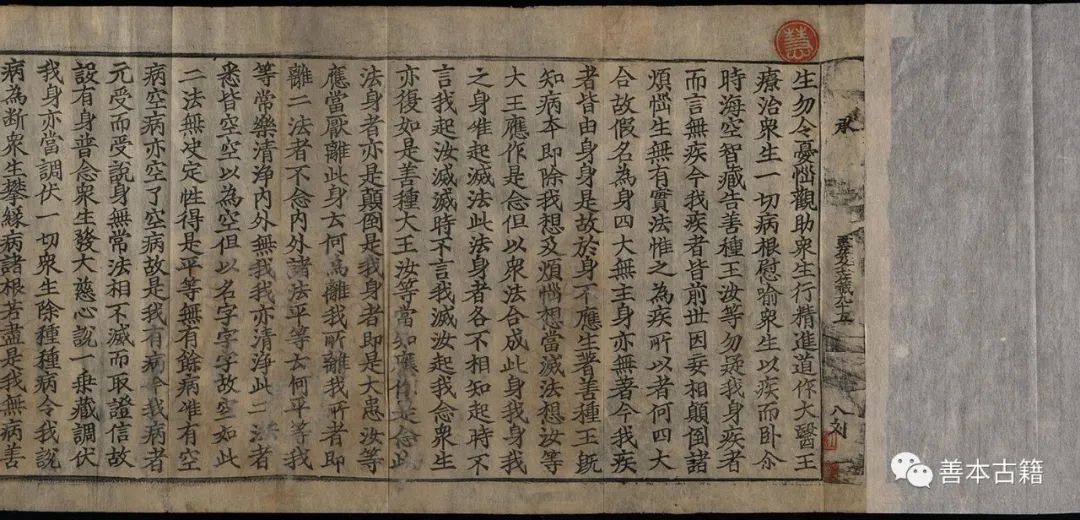 生勿令憂惱觀助衆生行精進道作大醫王
療治衆生一切病根慰喻衆生以疾而卧尒
時海空智藏告善種王汝等勿疑我身疾者
而言無疾今我疾者皆前世因妄相顛倒諸
煩惱生無有實法惟之為疾所以者何四大
合故假名為身四大無主身亦無著今我疾
者皆由身身是故於身不應生著善種王旣
知病本即除我想及煩惱想當滅法想汝等
大王應作是念但以衆法合成此身我身我
之身唯起滅法此法身者各不相知起時不
言我起汝滅滅時不言我滅汝起我念衆生
亦復如是善種大王汝等當知應作是念此
法身者亦是顛倒是我身者即是大患汝等
應當厭離此身去何為離我所離我所者即
離二法者不念内外諸法平等去何平等我
等常樂清浄内外無我我亦清浄此二法者
悉皆空空以為空但以名字字字故空如此
二法無决定性得是平等無有餘病唯有空
病空病亦空了空病故是我有病令我病者
元受而受說身無常法相不滅而取證信故
設有身普念衆生發大慈心說一乗藏調伏
我身亦當調伏一切衆生除種種病令我說
病為斷衆生攀縁病諸根若盡是我無病善
善本古籍